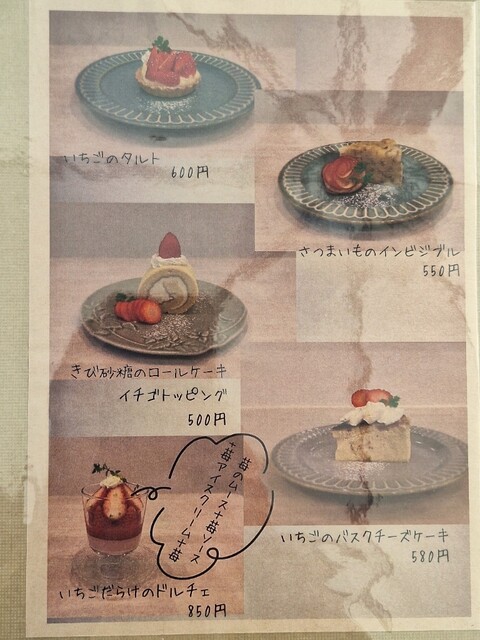 いちごのタルト
600円
さつまいものインビジブル
550円
きび砂糖のロールケーキ
イチゴトッピング
500円
苺のムース+苺ソース
+苺アイスクリーム+苺
いちごだらけのドルチェ
850円
いちごのバスクチーズケーキ
580円